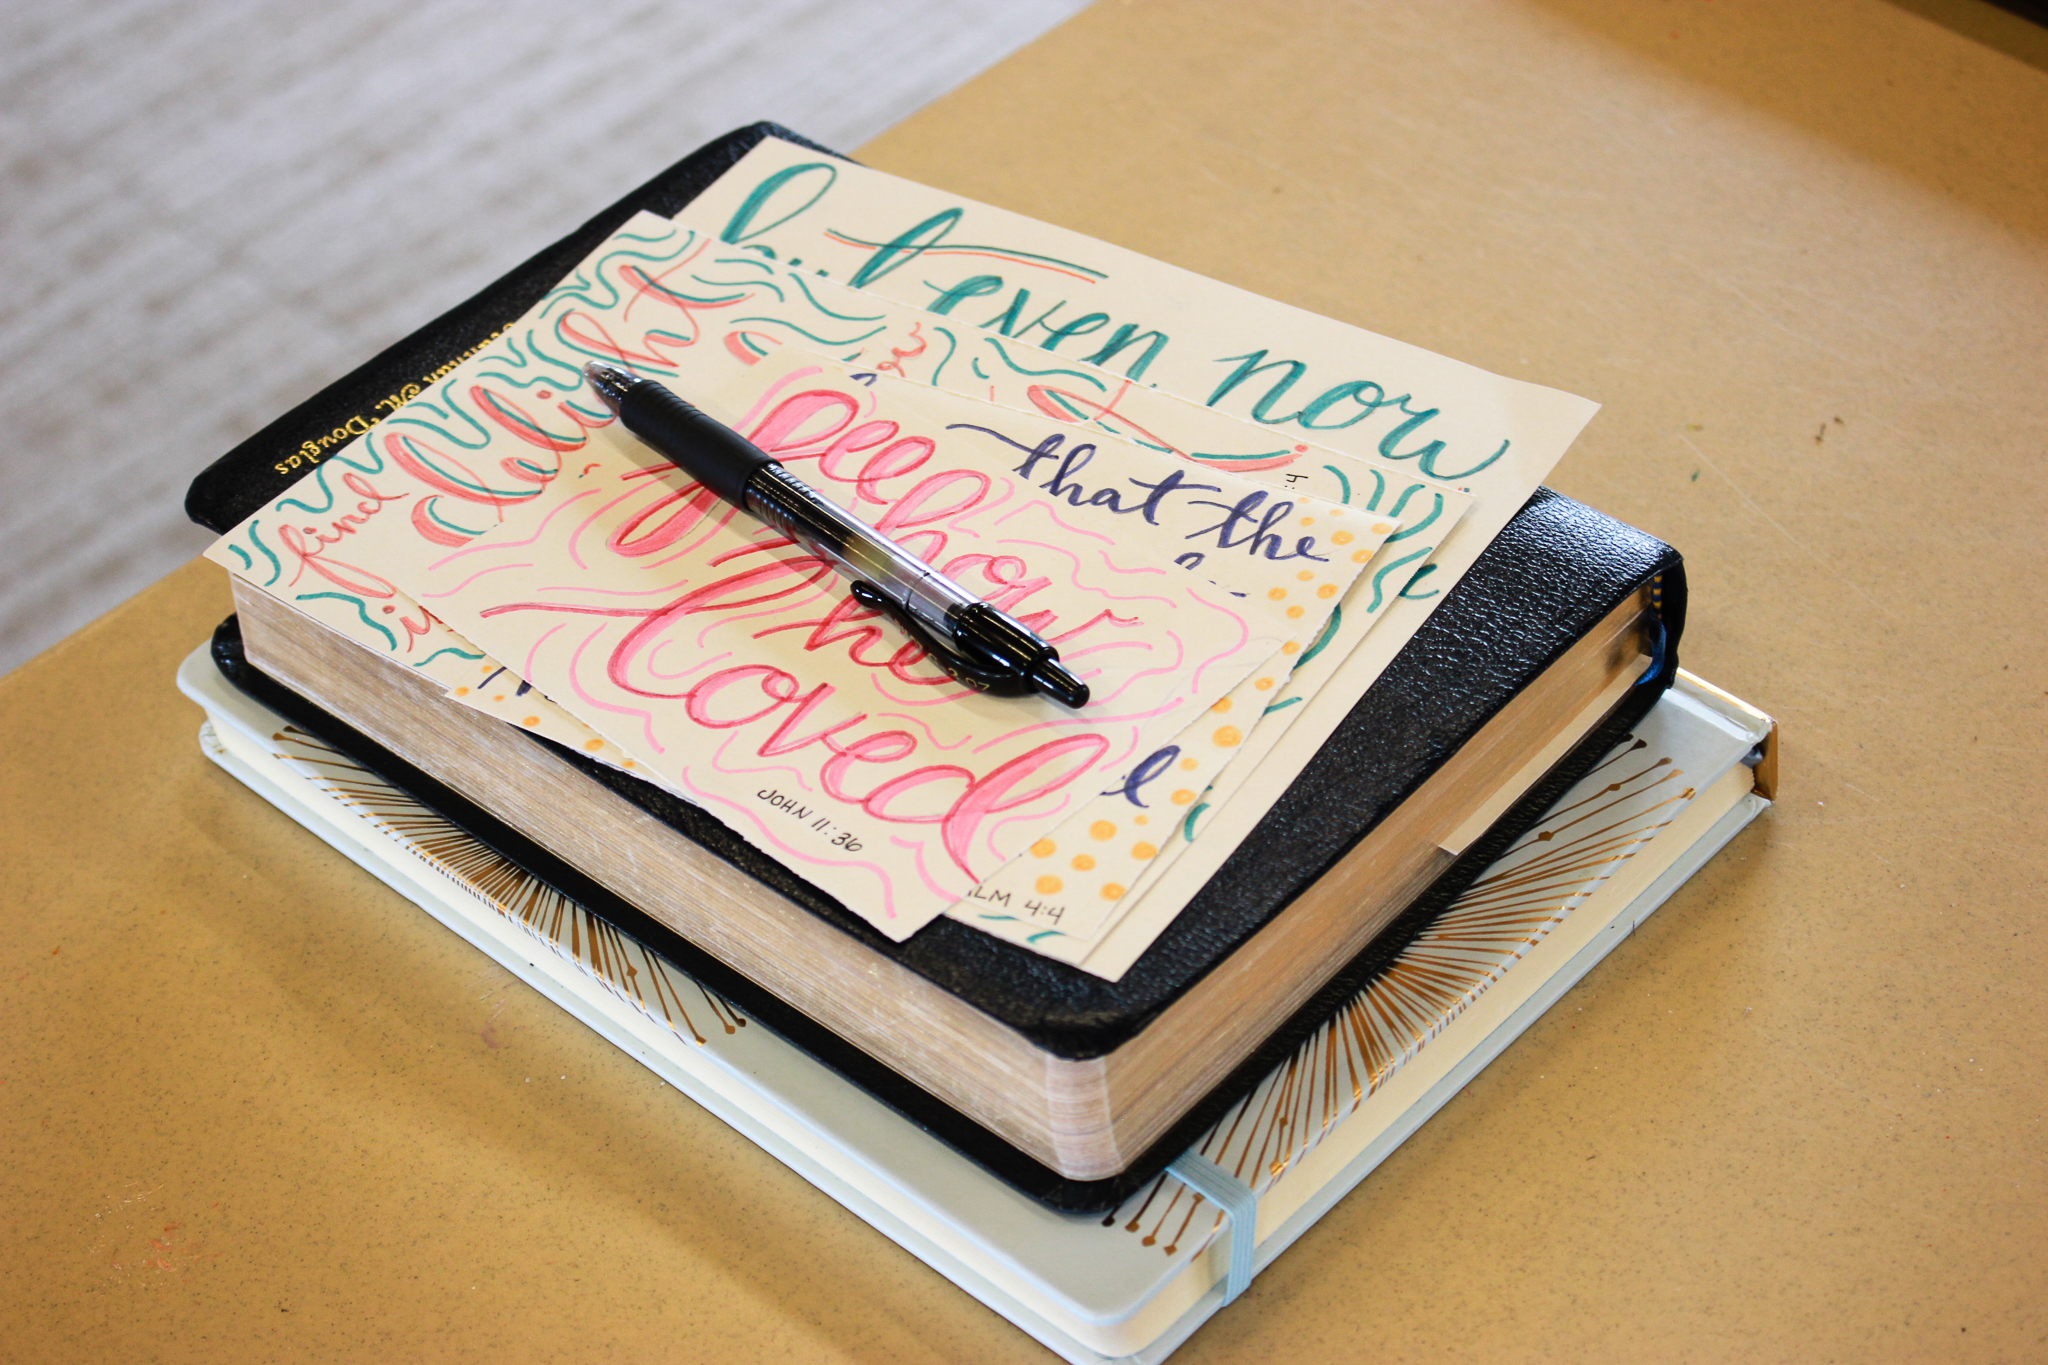 but even now
find delight
in
that the
ALM 4:4
See how
he
loved
JOHN 11:36
M. Douglas
0.7